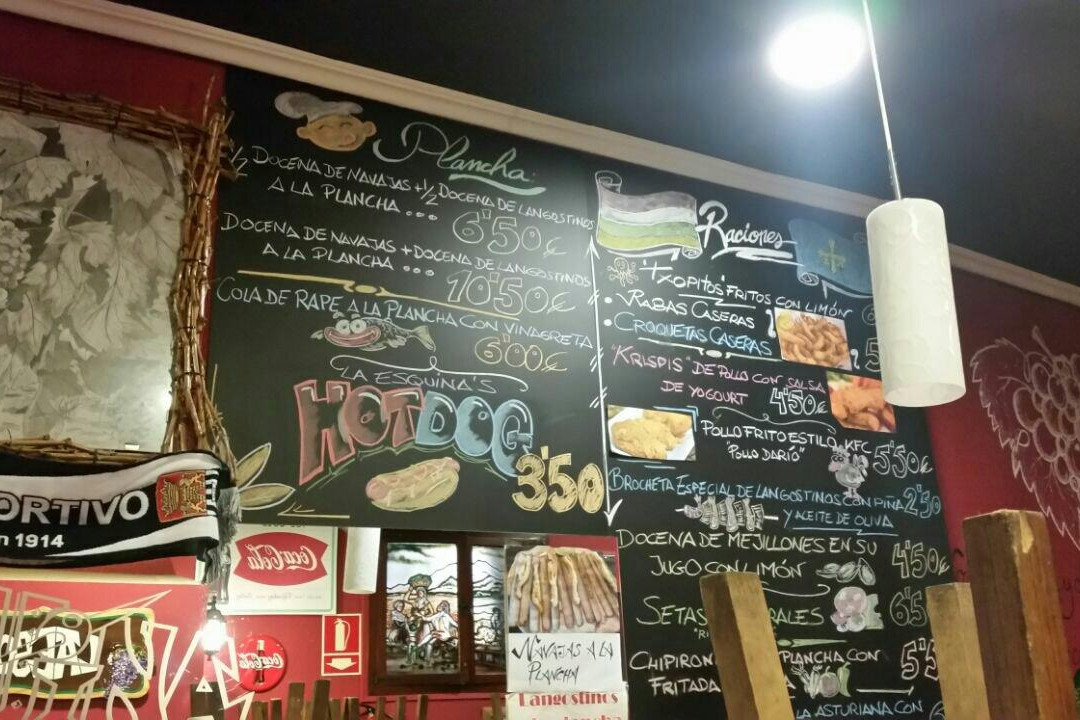 Plancha:
1/2 DOCENA DE NAVAJAS + 1/2 DOCENA DE LANGOSTINOS
A LA PLANCHA ... 6'50 €
DOCENA DE NAVAJAS + DOCENA DE LANGOSTINOS
A LA PLANCHA ... 10'50 €
COLA DE RAPE A LA PLANCHA CON VINAGRETA
6'00 €
"LA ESQUINA'S
HOT DOG
3'50
Raciones
"TXOPITOS" FRITOS CON LIMÓN
• RABAS CASERAS
• CROQUETAS CASERAS
"KRISPIS" DE POLLO CON SALSA
DE YOGOURT 4'50 €
POLLO FRITO ESTILO KFC
"POLLO DARIO" 5'50 €
BROCHETA ESPECIAL DE LANGOSTINOS CON PIÑA 2'50
Y ACEITE DE OLIVA
DOCENA DE MEJILLONES EN SU
JUGO CON LIMÓN 4'50 €
SETAS
CHIPIRON PLANCHA CON
FRITADA
LA ASTURIANA CON
ORTIVO
n 1914
Coca-Cola
Coca-Cola
NAVAJAS A LA
PLANCHA
Langostinos